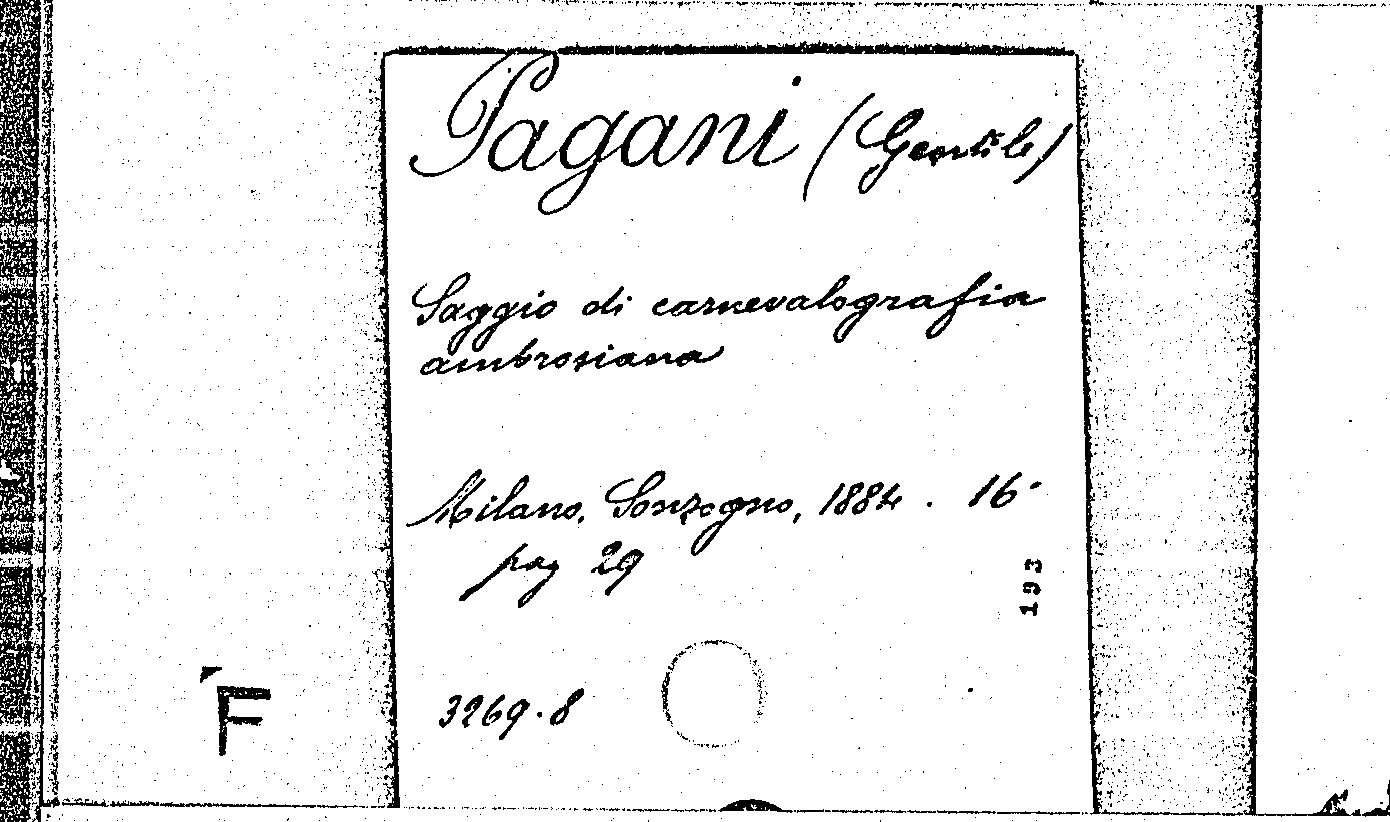 Pagani (Gentile)
Saggio di carnevalografia
ambrosiana
Milano, Sonzogno, 1884. 16°
pag 29
193
3269.8
F